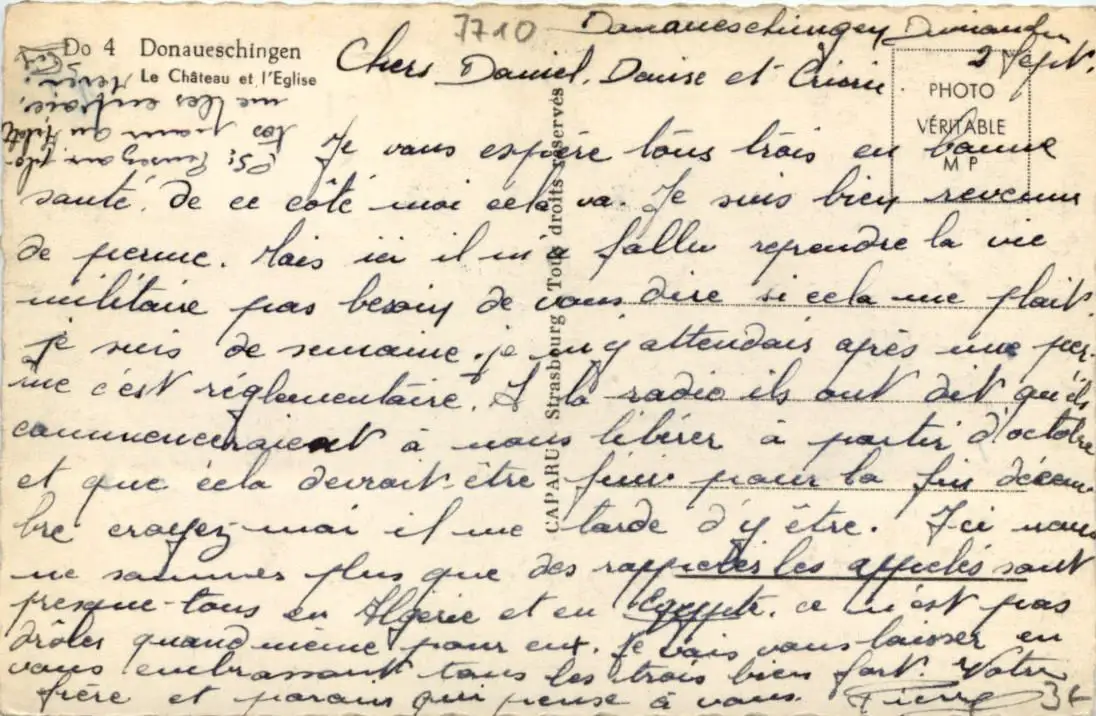 7710
Donaueschingen Dimanche
2 Sept.
Do 4 Donaueschingen
Le Château et l'Eglise
Chers Daniel, Denise et
PHOTO
VÉRITABLE
M P
Je vous espère tous trois en bonne
santé, de ce côté moi cela va. Je suis bien revenu
de perme. Mais ici il m'a fallu reprendre la vie
militaire pas besoin de vous dire si cela me plait.
je suis de semaine. je m'y attendais après une per-
me c'est réglementaire. A la radio ils ont dit qu'ils
commenceraient à nous libérer à partir d'octobre
et que cela devrait être fini pour la fin décem
bre croyez-moi il me tarde d'y être. Ici nous
ne sommes plus que des rappelés les appelés sont
presque tous en Algérie et en Egypte. ce n'est pas
drôle quand même pour eux. Je vais vous laisser en
vous embrassant tous les trois bien fort. Votre
frère et parrain qui pense à vous. Pierre
CAPARU Strasbourg Tous droits réservés
PS: